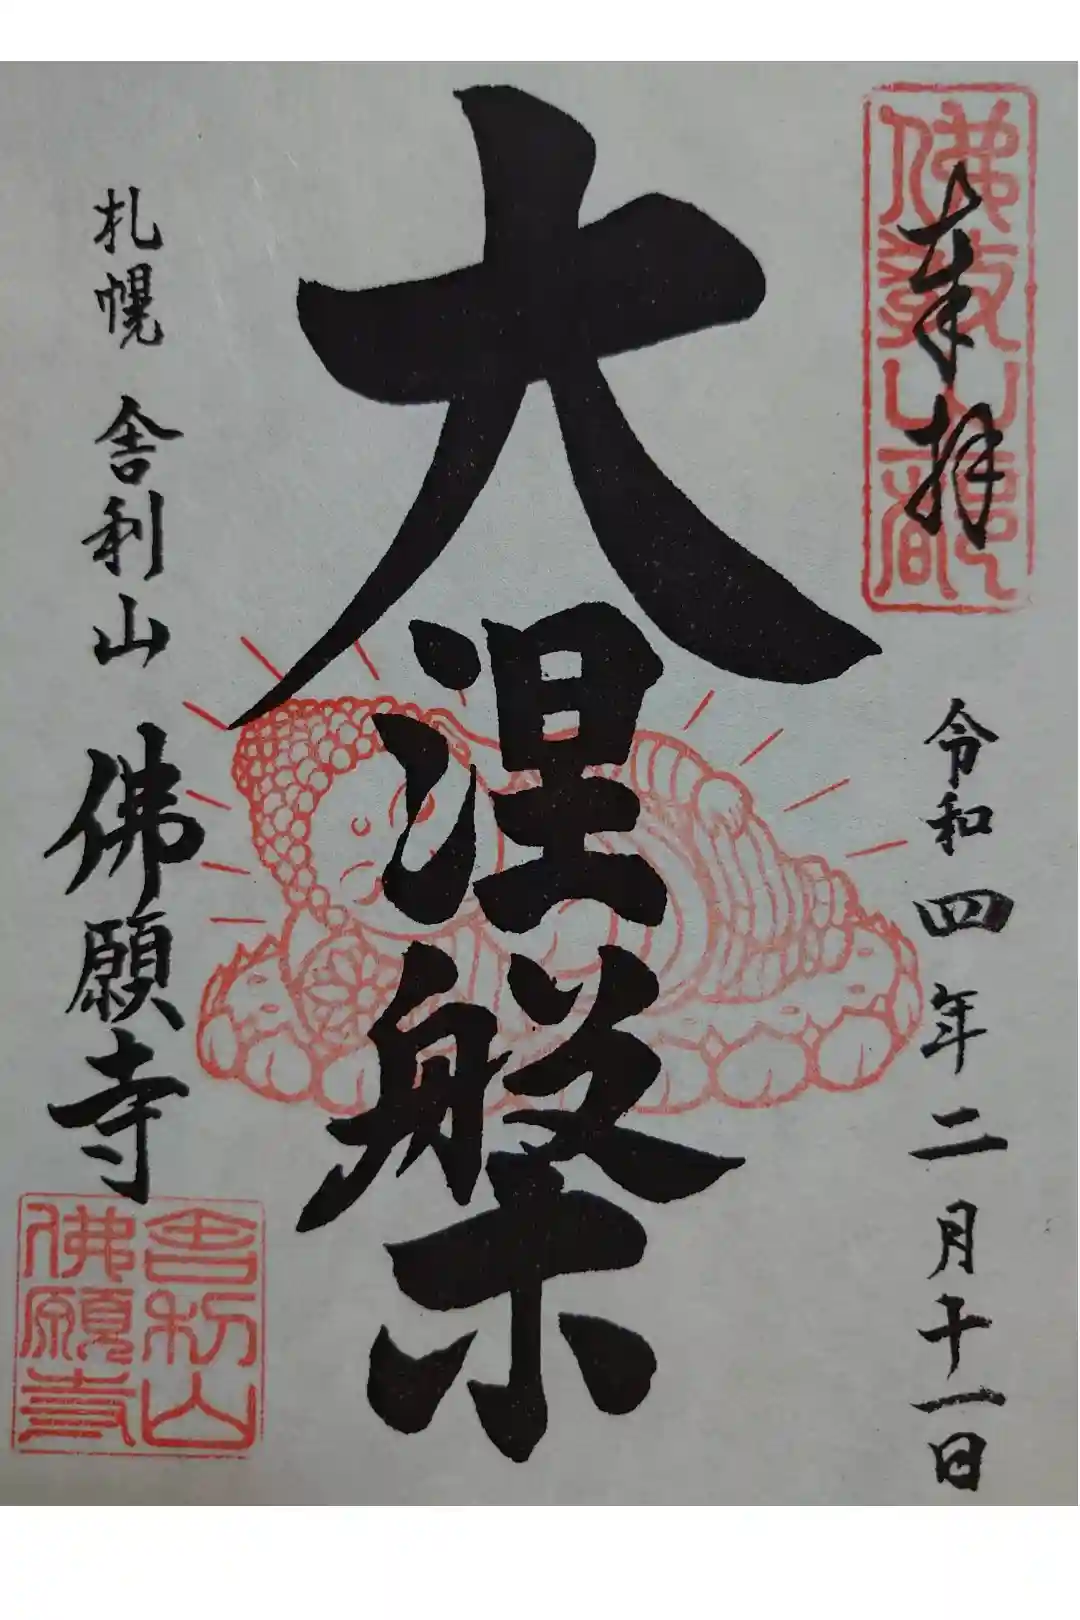 奉拝
佛教山龍
令和四年二月十一日
大涅槃
札幌 舎利山 佛願寺
舎利山
佛願寺